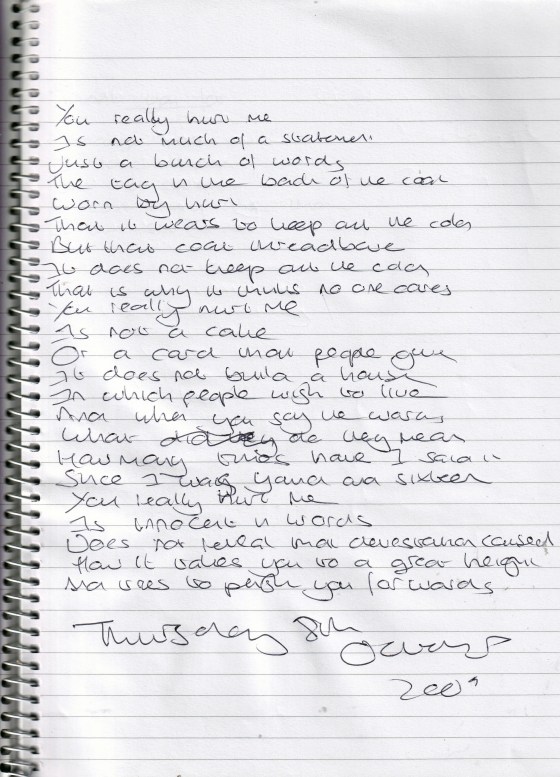 You really hurt me
Is not much of a statement
Just a bunch of words
The tag in the back of the coat
Worn by hurt
That it wears to keep out the cold
But that coat threadbare
It does not keep out the cold
That is why it thinks no one cares
You really hurt me
Is not a cake
Or a card that people give
It does not build a house
In which people wish to live
And when you say the words
What do they mean
How many times have I said it
Since I was young and sixteen
You really hurt me
Is innocent in words
Does not reveal that devestation caused
How it takes you to a great height
And tries to push you forwards
Thursday 8th
October
2009